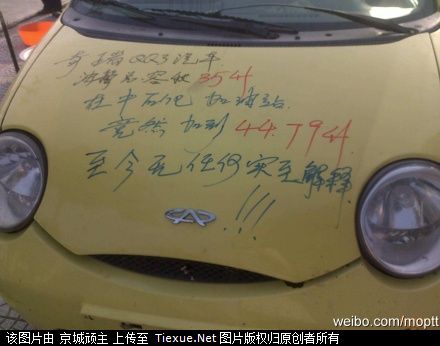 奇瑞QQ3汽车
油箱总容积35升
在中石化加油站.
竟然加到44.79升
至今无任何实至解释
!!!
weibo.com/moptt
该图片由 京城顽主 上传至 Tiexue.Net 图片版权归原创者所有